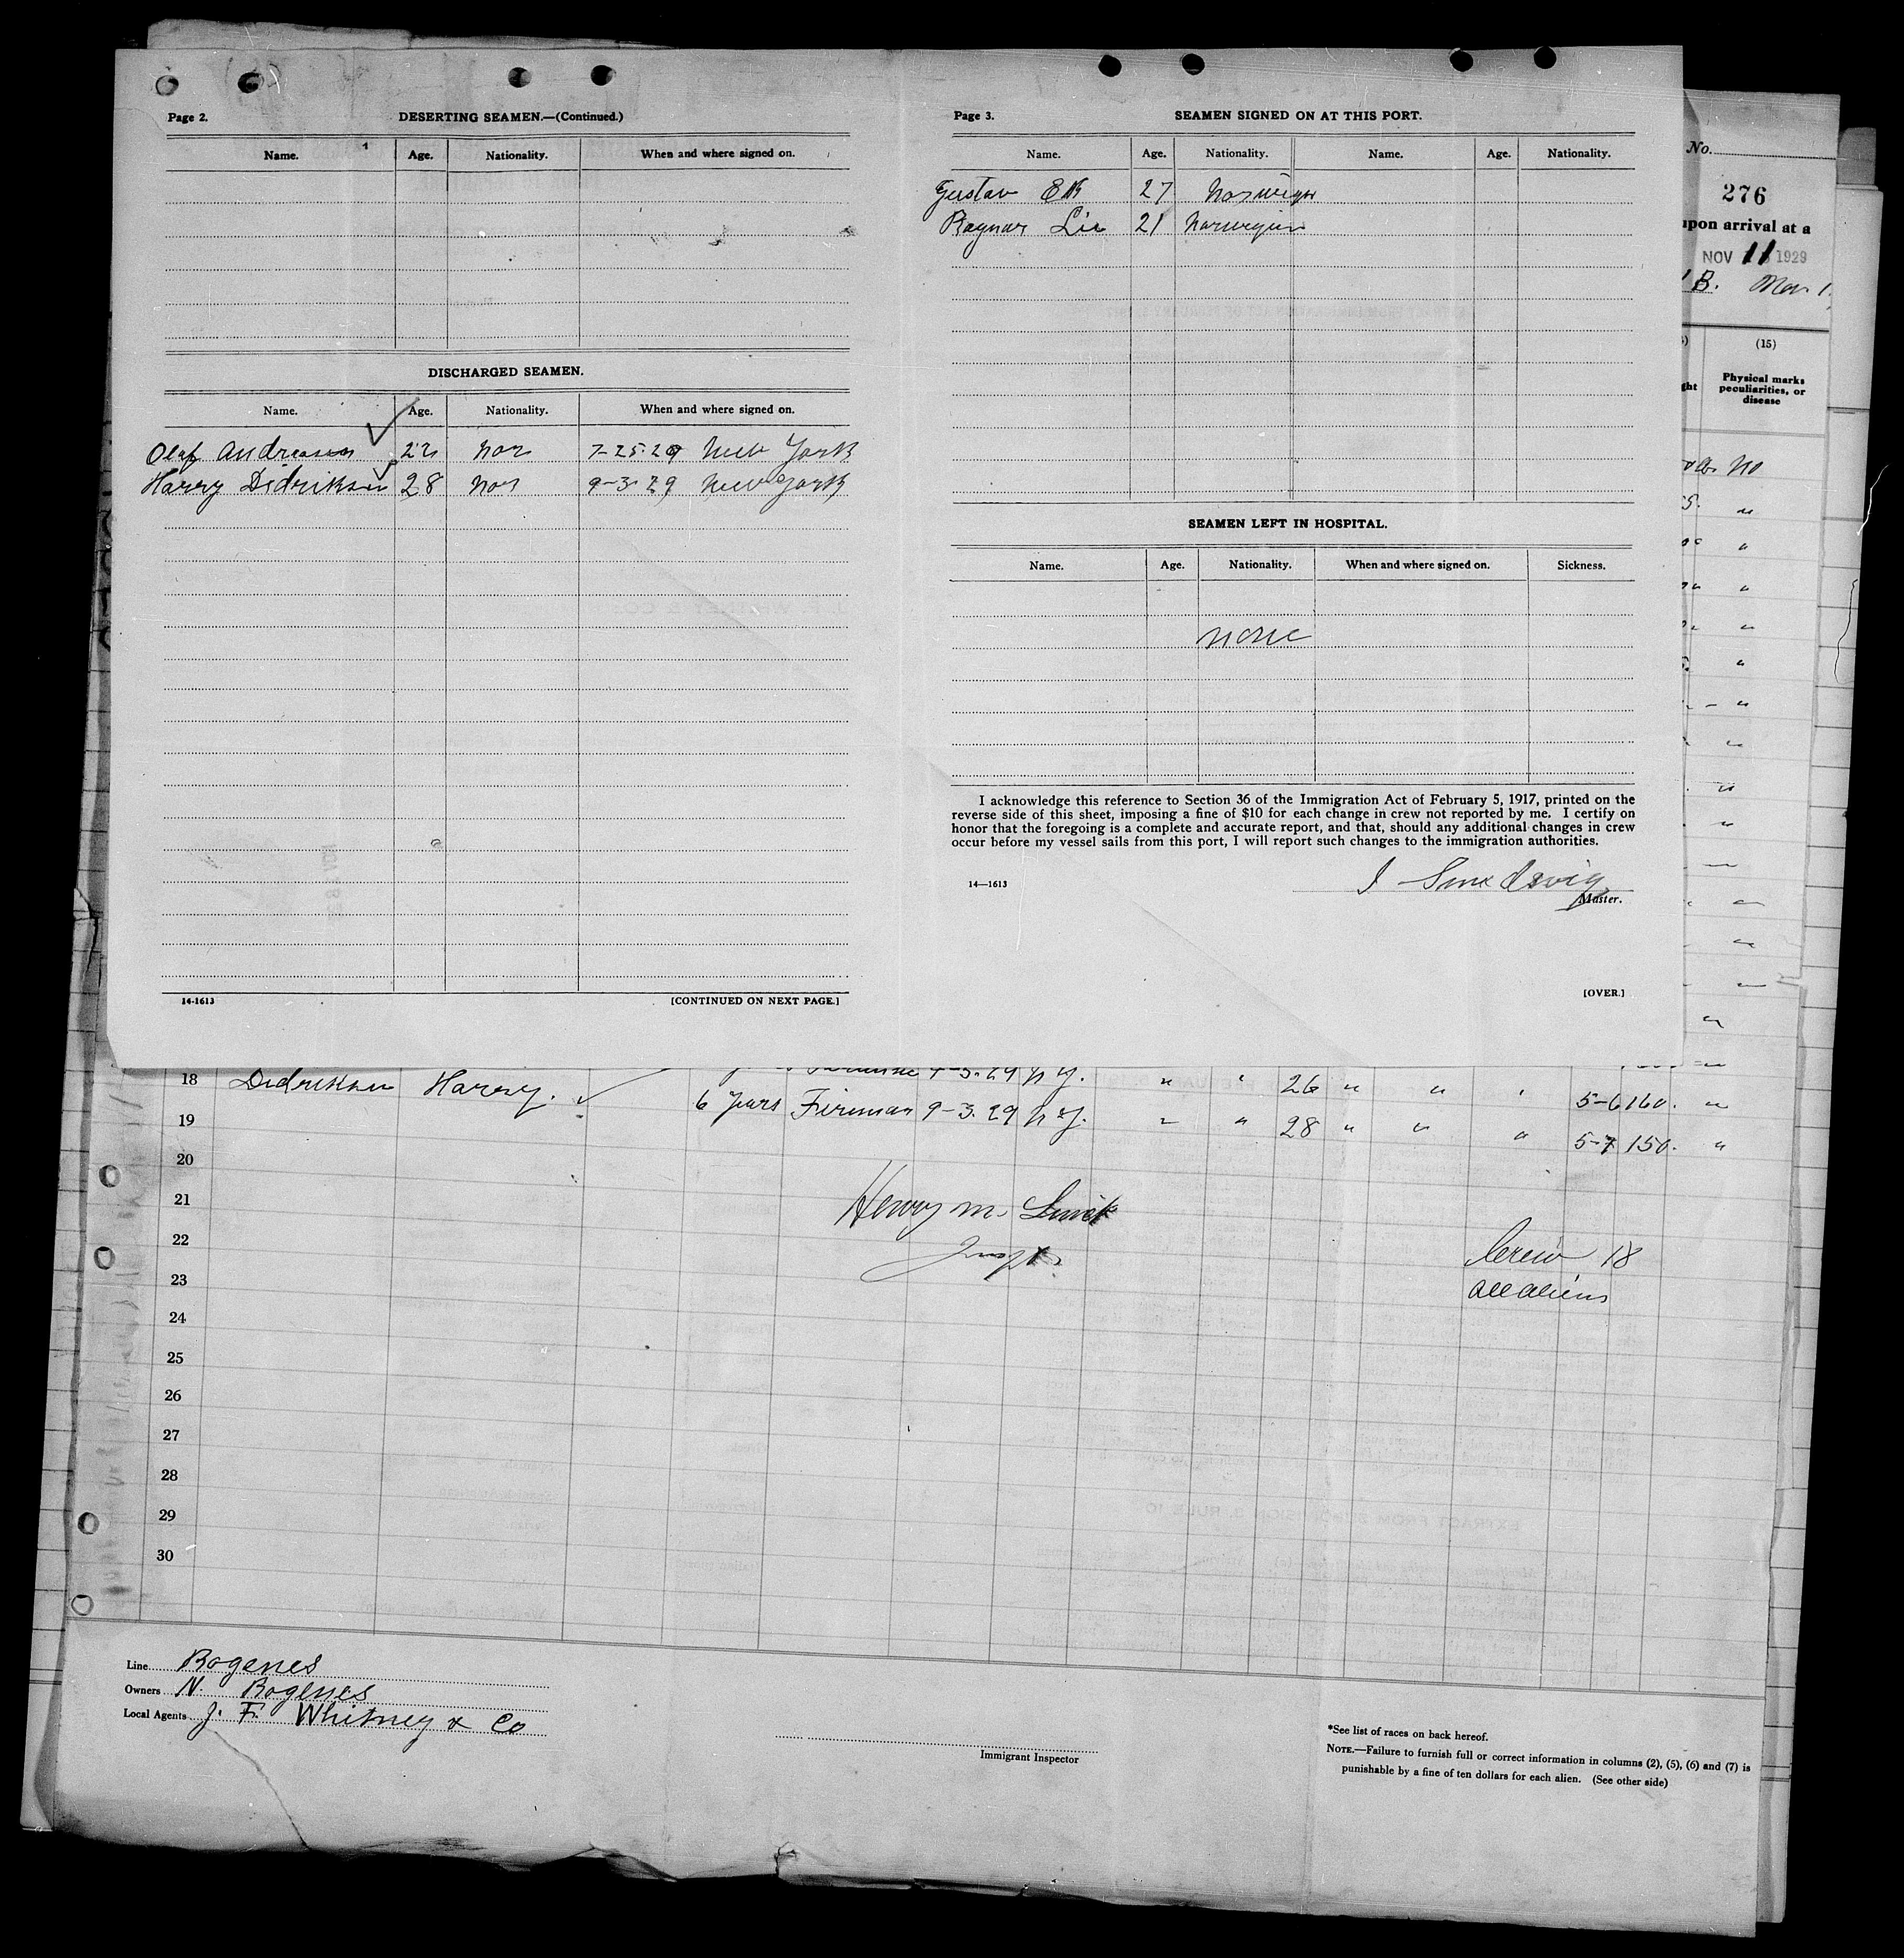 Page 2.
DESERTING SEAMEN.—(Continued.)
Name. Age. Nationality. When and where signed on.
DISCHARGED SEAMEN.
Name. Age. Nationality. When and where signed on.
Olaf Andreasen 22 Nor 7-25-29 New York
Harry Didriksen 28 Nor 9-3-29 New York
14-1613
[CONTINUED ON NEXT PAGE.]
Page 3.
SEAMEN SIGNED ON AT THIS PORT.
Name. Age. Nationality. Name. Age. Nationality.
Gustav Ek 27 Norwegian
Ragnar Lie 21 Norwegian
SEAMEN LEFT IN HOSPITAL.
Name. Age. Nationality. When and where signed on. Sickness.
none
I acknowledge this reference to Section 36 of the Immigration Act of February 5, 1917, printed on the
reverse side of this sheet, imposing a fine of $10 for each change in crew not reported by me. I certify on
honor that the foregoing is a complete and accurate report, and that, should any additional changes in crew
occur before my vessel sails from this port, I will report such changes to the immigration authorities.
14—1613
Master.
[OVER.]
No.
276
upon arrival at a
NOV 11 1929
B. Nov. 1
(15)
Physical marks
peculiarities, or
disease
No
18 Didriksen Harry. 9-3-29 N.Y. " " 26 " " " 5-6 160. "
19 6 years Fireman 9-3-29 N.Y. " " 28 " " " 5-7 150. "
20
21 Henry M.
22 Inspt. Crew 18
23 all aliens
24
25
26
27
28
29
30
Line Bogenes
Owners N. Bogenes
Local Agents J. F. Whitney & Co
Immigrant Inspector
*See list of races on back hereof.
NOTE.—Failure to furnish full or correct information in columns (2), (5), (6) and (7) is
punishable by a fine of ten dollars for each alien. (See other side)